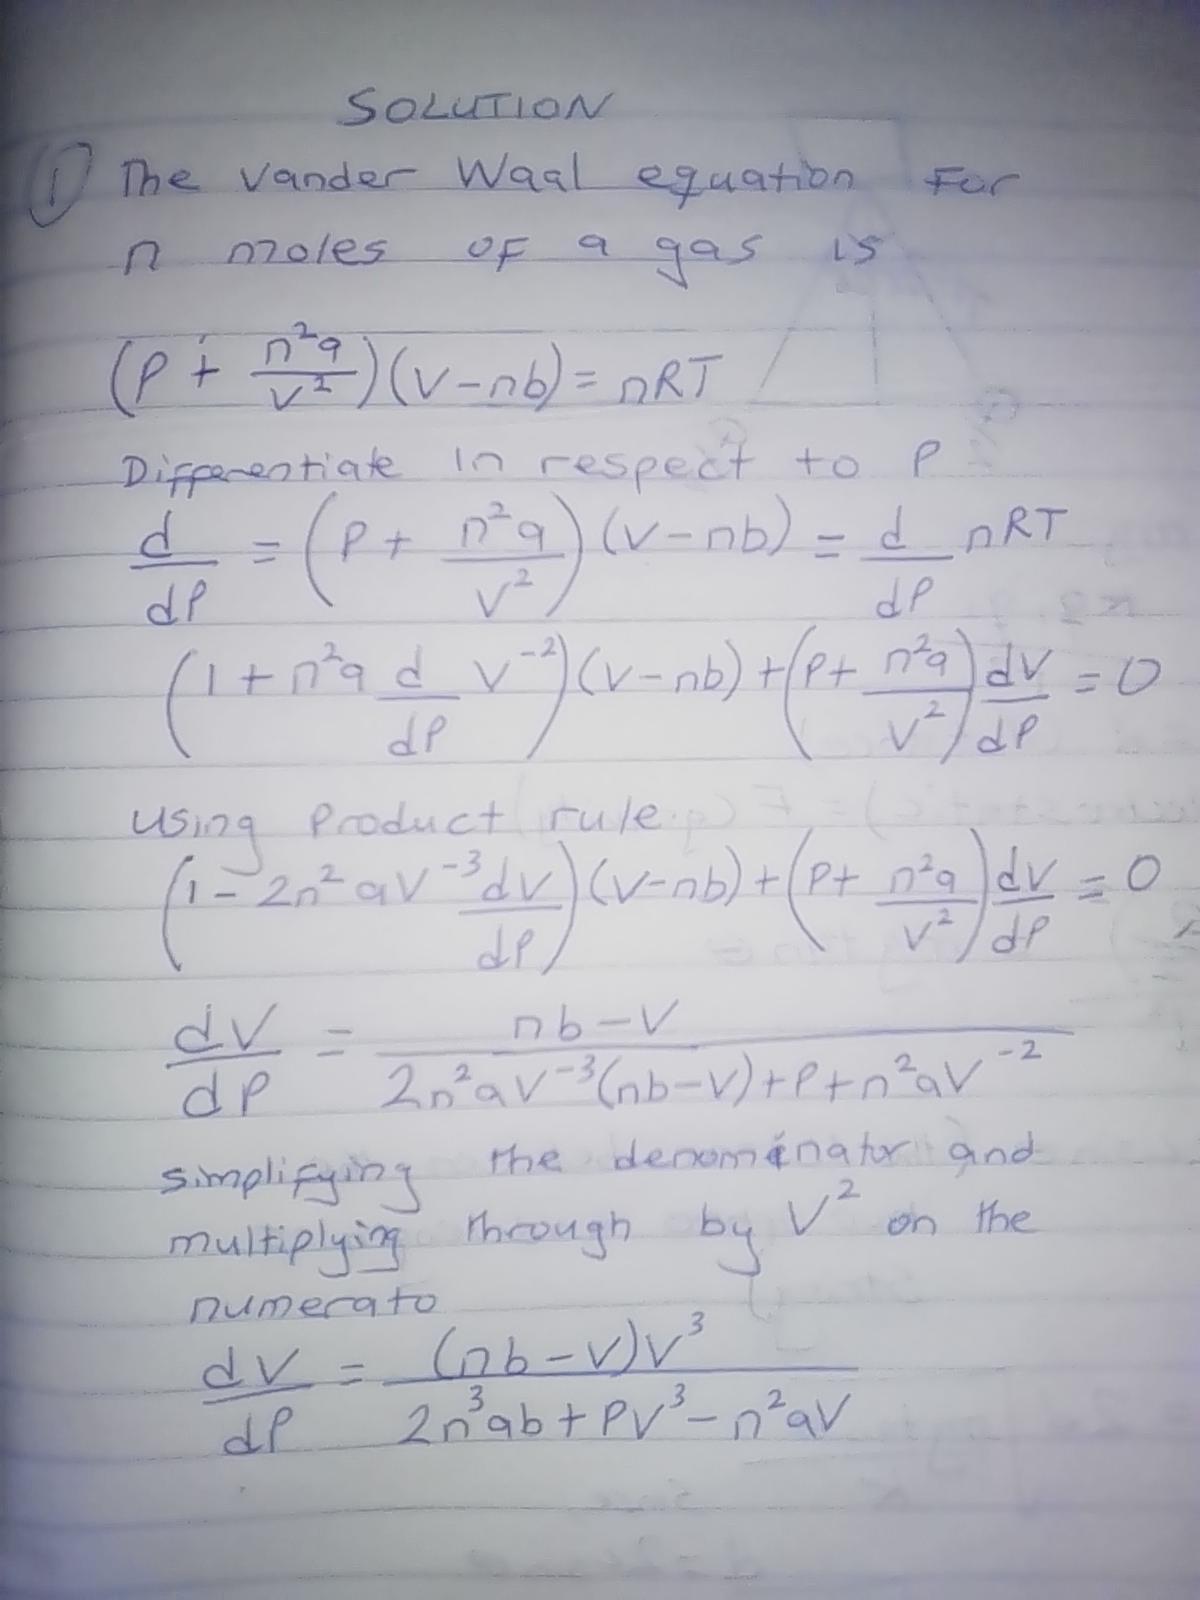 SOLUTION
① The Vander Waal equation For
n moles of a gas is
(P + n²a/V²)(V-nb) = nRT
Differentiate In respect to P
d/dP = (P + n²a/V²)(V-nb) = d/dP nRT
(1 + n²a d/dP V⁻²)(V-nb) + (P + n²a/V²) dV/dP = 0
Using Product rule
(1 - 2n²aV⁻³ dV/dP)(V-nb) + (P + n²a/V²) dV/dP = 0
dV/dP = nb-V / 2n²aV⁻³(nb-V) + P + n²aV⁻²
simplifying the denominator and
multiplying through by V² on the
numerato
dV/dP = (nb-V)V³ / 2n³ab + PV³ - n²aV